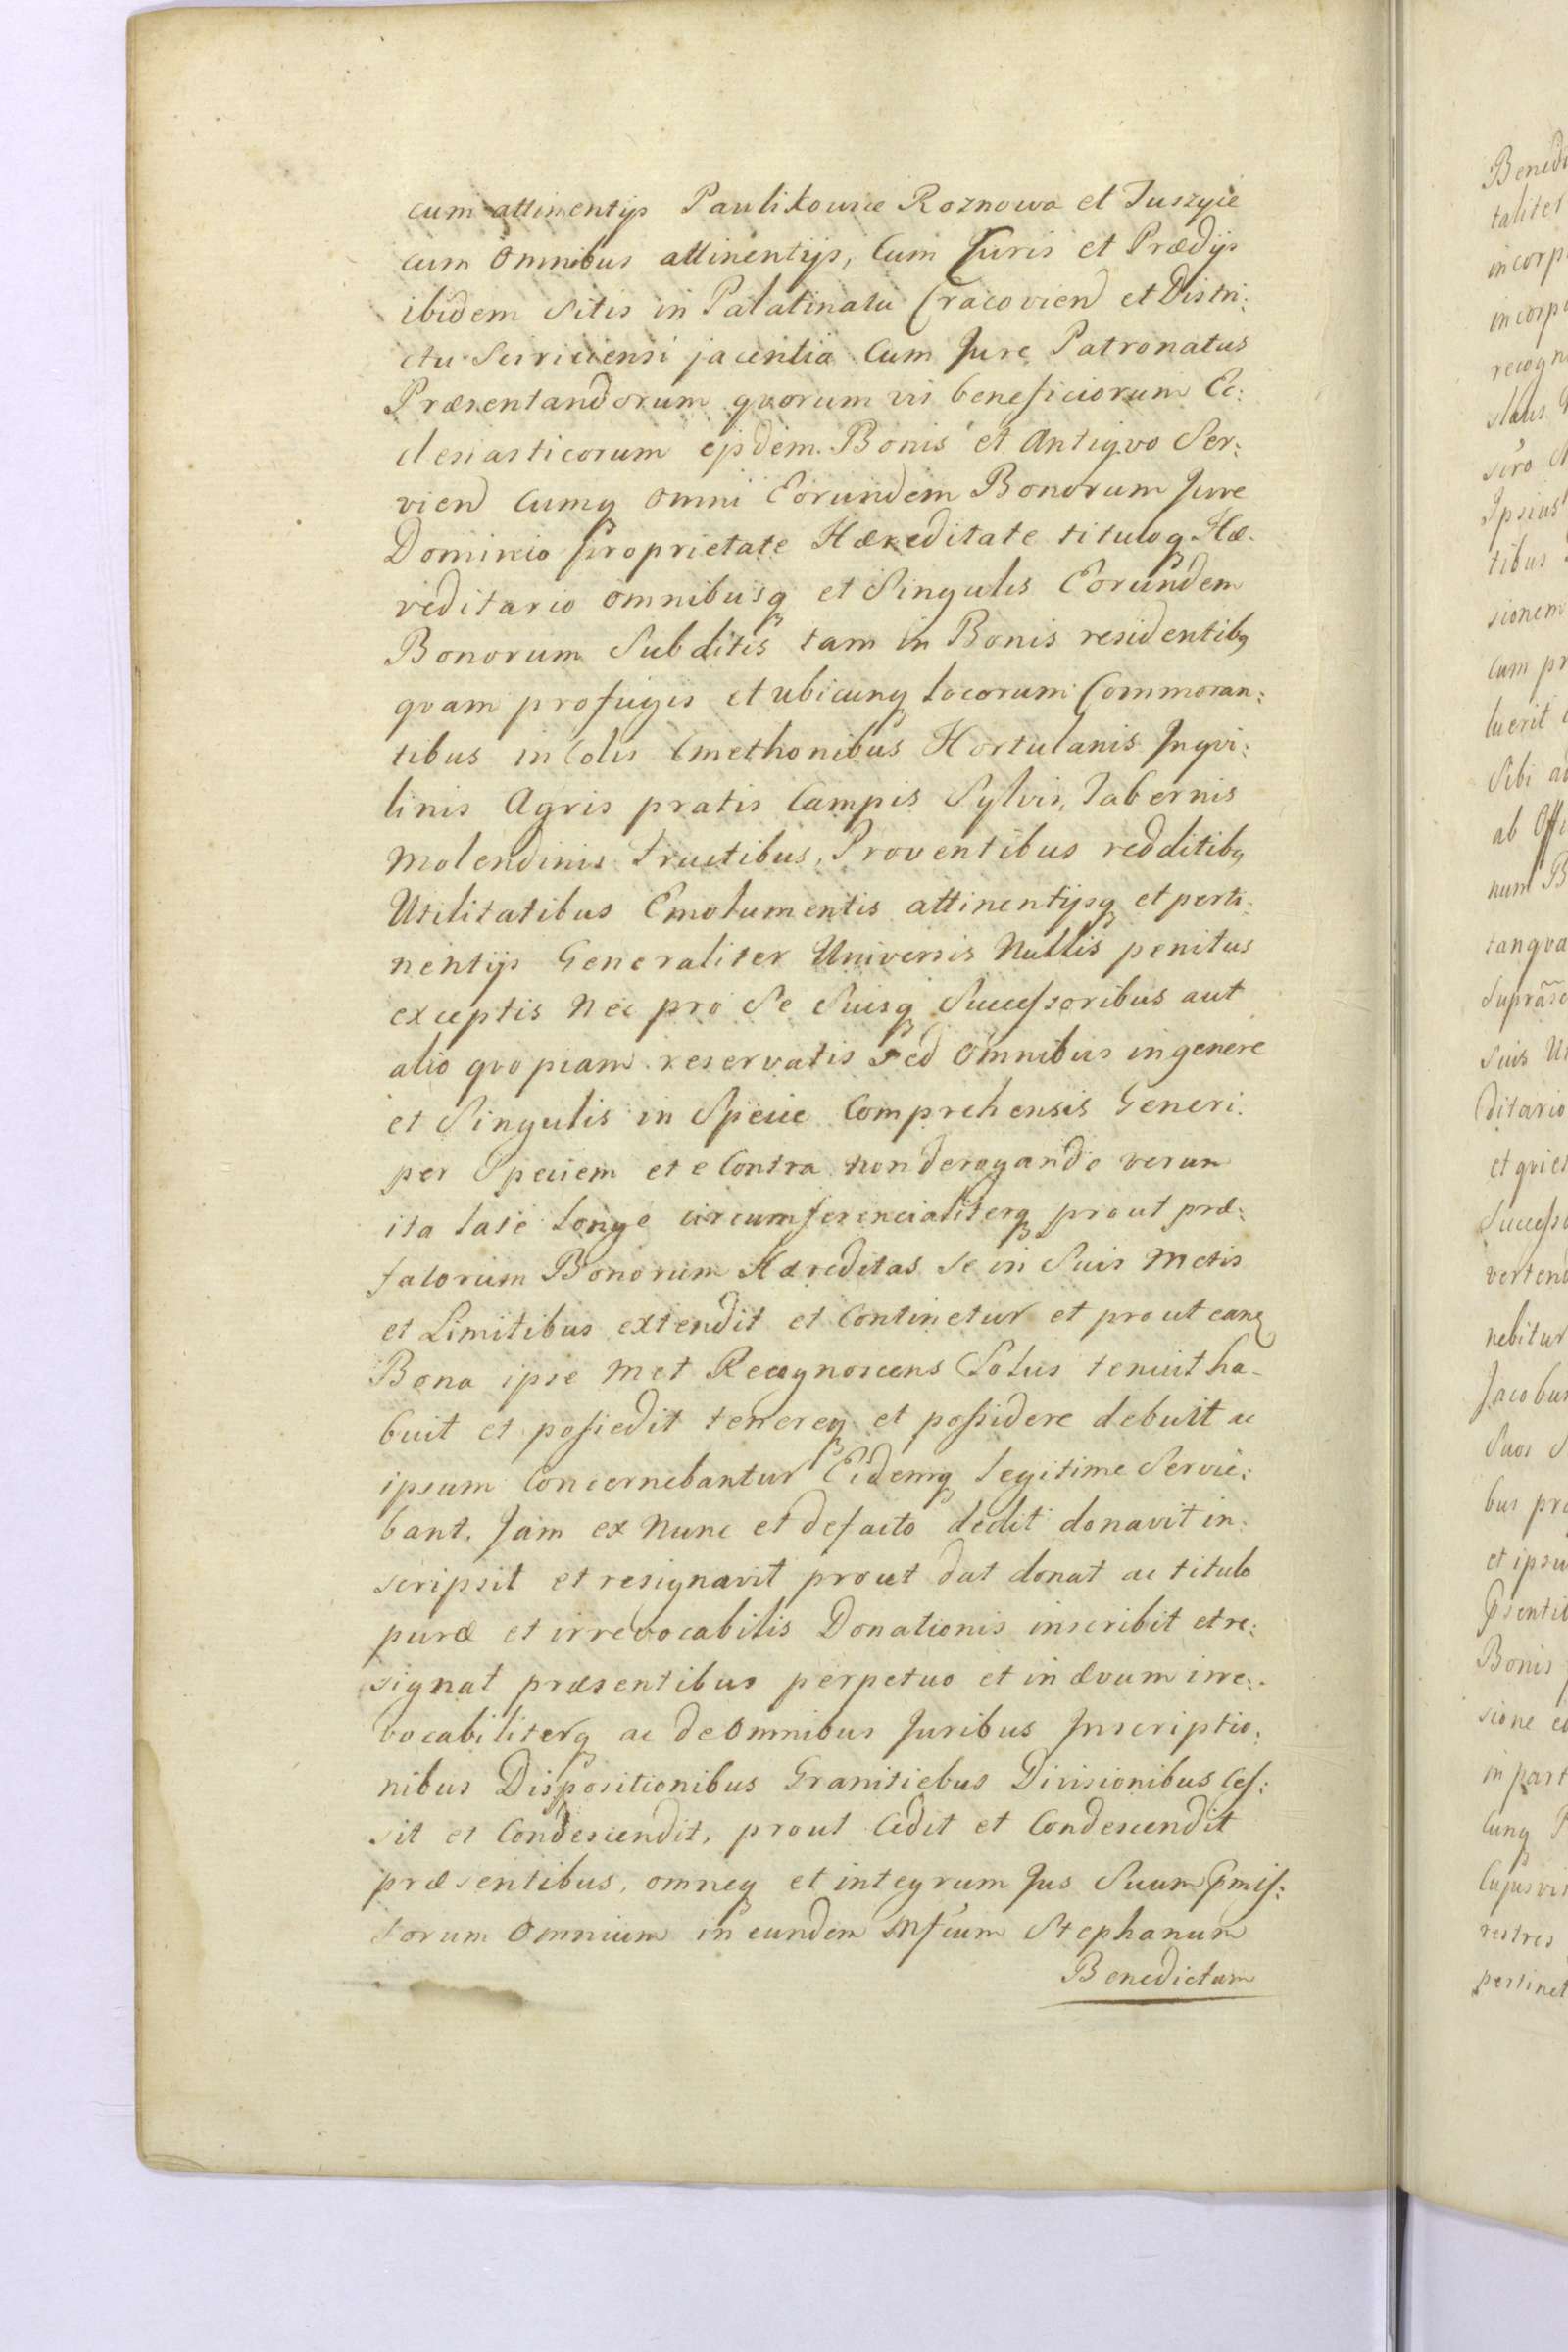 cum attinentijs Paulikowice Roznowa et Tuszyie
cum omnibus attinentijs, Cum Curis et Prædijs
ibidem Sitis in Palatinatu Cracoviend et Distri:
ctu Scirciensi jacentia Cum Jure Patronatus
Præsentandorum quorum vis beneficiorum Ec:
clesiasticorum ejsdem Bonis et Antiquo Ser:
viend Cumq omni Eorundem Bonorum Jure
Dominio proprietate Hæreditate tituloq Hæ-
reditario omnibusq et Singulis Eorundem
Bonorum Subditis tam in Bonis residentibq
quam profugis et ubicunq locorum Commoran:
tibus in Colis Cmethonibus Hortulanis Inqvi:
linis Agris pratis Campis Sylvis, Tabernis
Molendinis Fructibus, Proventibus redditibq
Utilitatibus Emolumentis attinentijsq et perti:
nentijs Generaliter Universis Nullis penitus
exceptis Nec pro Se Suisq Successoribus aut
alio quopiam reservatis Sed omnibus in genere
et Singulis in Specie Comprehensis Generi
per Speciem et e Contra non derogando verum
ita late longe circumferencialiterq prout præ:
fatorum Bonorum Hæreditas se in Suis Metis
et Limitibus extendit et Continetur et prout eanq
Bona ipse met Recognoscens Solus tenuit ha-
buit et possedit tenereq et possidere debuit ac
ipsum Concernebantur Eidemq legitime Servie:
bant. Jam ex Nunc et defacto dedit donavit in:
scripsit et resignavit prout dat donat ac titulo
puræ et irrevocabilis Donationis inscribit et re:
signat præsentibus perpetuo et in ævum irre:
vocabiliterq ac de omnibus Juribus Inscriptio:
nibus Dispositionibus Granitiebus Divisionibus Ces:
sit et Condescendit, prout Cedit et Condescendit
præsentibus, omneq et integrum Jus Suum Pmis:
sorum Omnium in eundem Mfcum Stephanum
Benedictum

Bened
taliter
incorp
incorp
recogn
slaus
sēro
Ipsius
tibus
sionem
Cum pr
luerit
Sibi ad
ab Offi
num B
tanqva
Suprāsc
Suis Un
ditario
et quiet
Successo
vertend
nebitur
Jacobus
Suos S
bus pro
et ipsu
psentib
Bonis
sione
in part
Cunq
Cujusvis
restres
pertinet